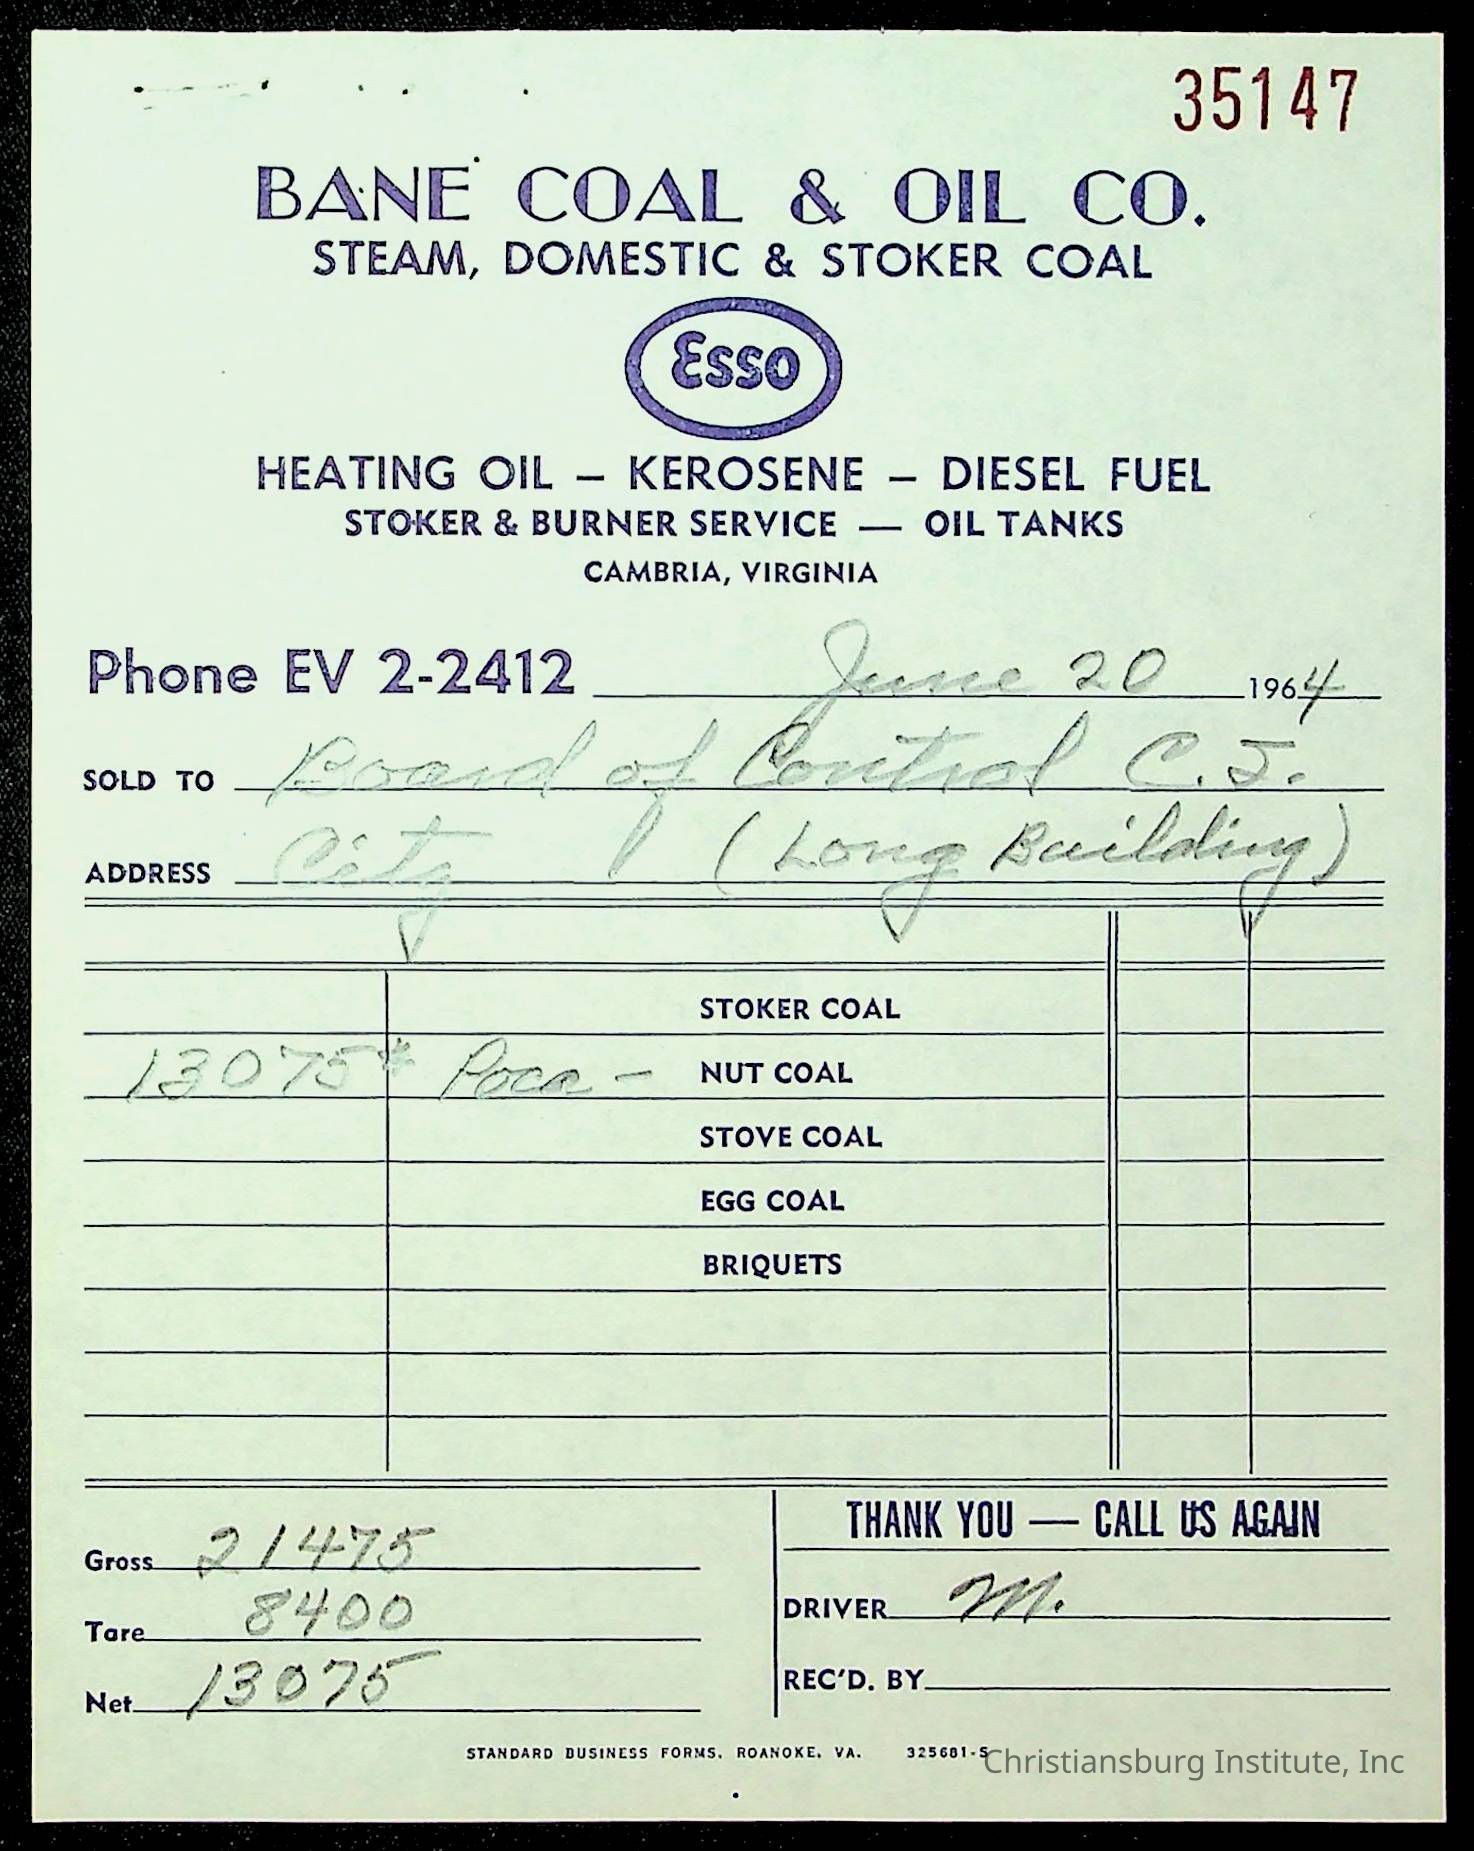 35147
BANE COAL & OIL CO.
STEAM, DOMESTIC & STOKER COAL
Esso
HEATING OIL – KEROSENE – DIESEL FUEL
STOKER & BURNER SERVICE — OIL TANKS
CAMBRIA, VIRGINIA
Phone EV 2-2412 June 20 1964
SOLD TO Board of Control C. I.
ADDRESS City (Long Building)
STOKER COAL
13075# Poca - NUT COAL
STOVE COAL
EGG COAL
BRIQUETS
THANK YOU — CALL US AGAIN
Gross 21475
Tare 8400
Net 13075
DRIVER M.
REC'D. BY
STANDARD BUSINESS FORMS, ROANOKE, VA. 325681-S
Christiansburg Institute, Inc